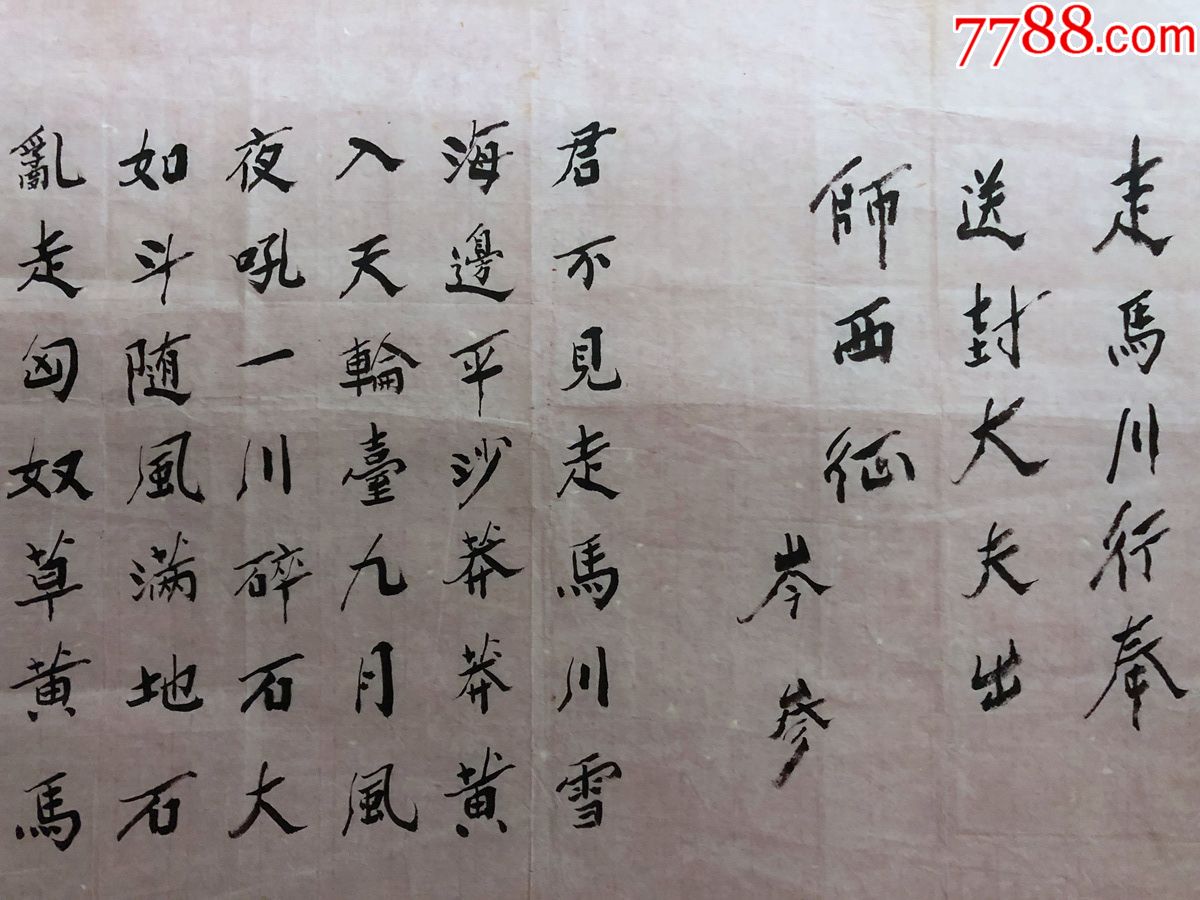 走馬川行奉
送封大夫出
師西征
岑參
君不見走馬川雪
海邊平沙莽莽黄
入天輪臺九月風
夜吼一川碎石大
如斗随風满地石
亂走匈奴草黄馬
7788.com